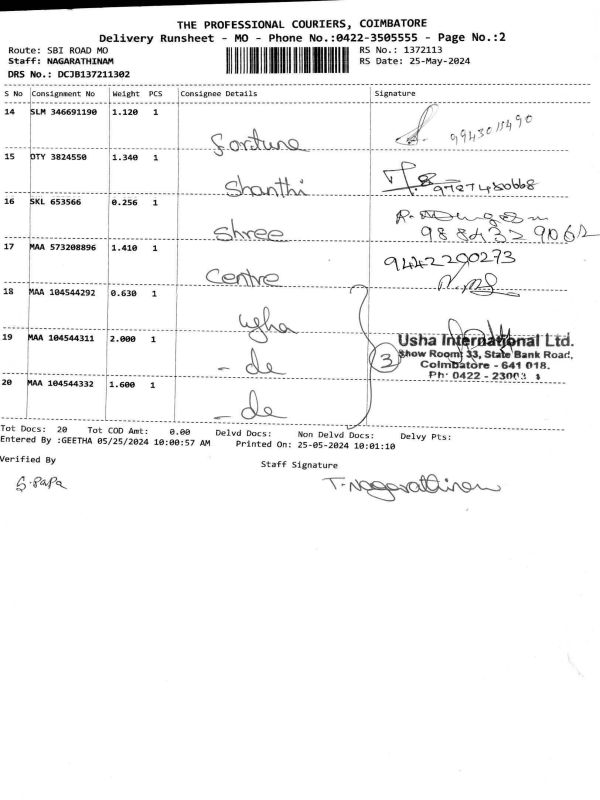 THE PROFESSIONAL COURIERS, COIMBATORE
Delivery Runsheet - MO - Phone No.:0422-3505555 - Page No.:2
Route: SBI ROAD MO RS No.: 1372113
Staff: NAGARATHINAM RS Date: 25-May-2024
DRS No.: DCJB137211302
S No Consignment No Weight PCS Consignee Details Signature
14 SLM 346691190 1.120 1
Fortune
15 OTY 3824550 1.340 1
Shanthi 9787480668
16 SKL 653566 0.256 1
Shree
17 MAA 573208896 1.410 1 9442200273
Centre
18 MAA 104544292 0.630 1
usha
19 MAA 104544311 2.000 1 Usha International Ltd.
- do 3 Show Room: 33, State Bank Road,
Coimbatore - 641 018.
20 MAA 104544332 1.600 1 Ph: 0422 - 23003
- do
Tot Docs: 20 Tot COD Amt: 0.00 Delvd Docs: Non Delvd Docs: Delvy Pts:
Entered By :GEETHA 05/25/2024 10:00:57 AM Printed On: 25-05-2024 10:01:10
Verified By Staff Signature
S. PaPa T. Nagarathinam